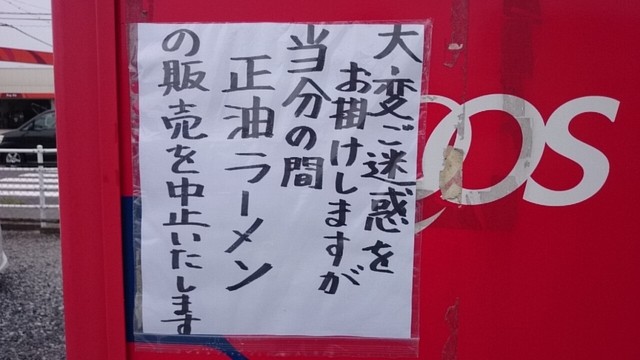 大変ご迷惑を
お掛けしますが
当分の間
正油ラーメン
の販売を中止いたします
OS